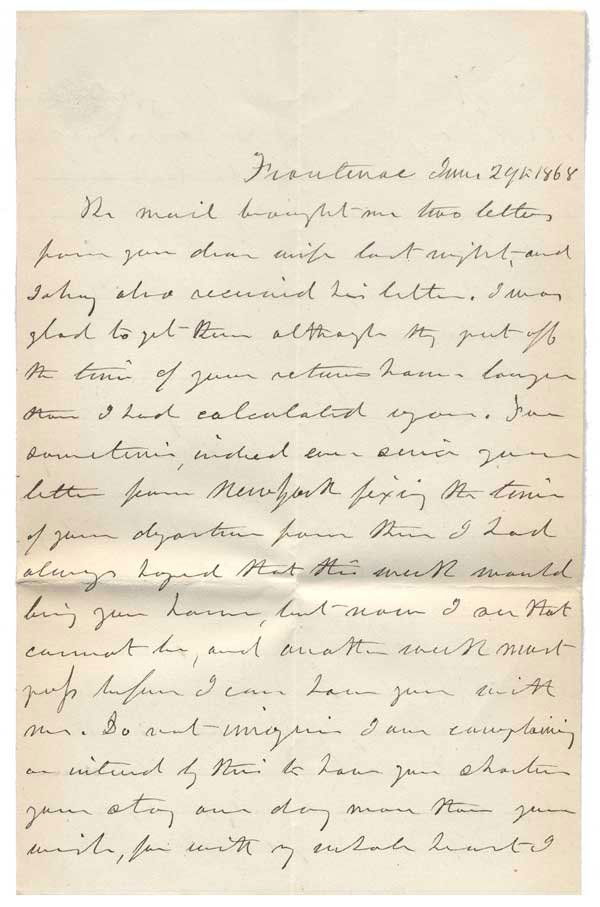 Frontenac June 29th 1868
The mail brought me two letters
from you dear wife last night, and
Isking also received his letter. I was
glad to get them although they put off
the time of your return home longer
than I had calculated upon. For
sometime, indeed ever since your
letter from New York fixing the time
of your departure from there I had
always hoped that this week would
bring you home, but now I see that
cannot be, and another week must
pass before I can have you with
me. Do not imagine I am complaining
or intend by this to have you shorten
your stay one day more than you
wish, for with my whole heart I